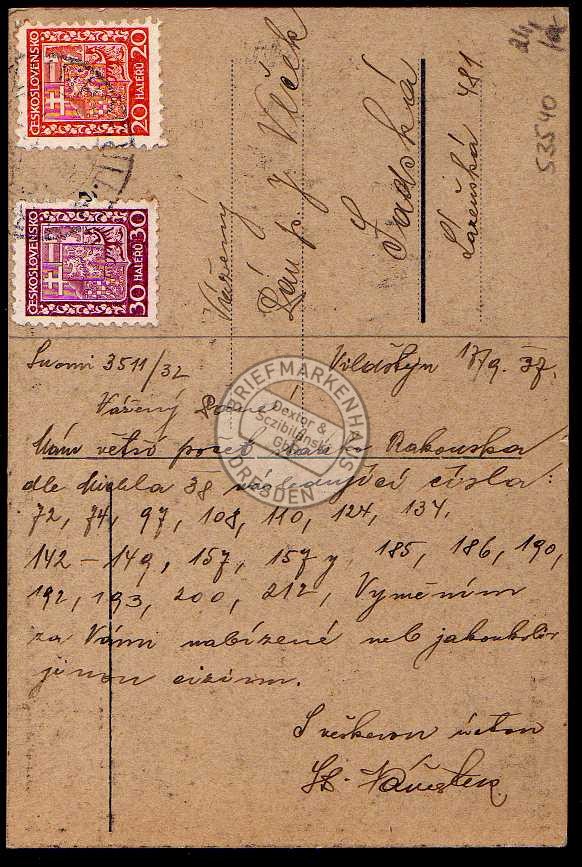 ČESKOSLOVENSKO
20 HALÉŘŮ 20
ČESKOSLOVENSKO
30 HALÉŘŮ 30
Vážený
Pán
Vlček
Sadská
Lázeňská 481.
53540
BRIEFMARKENHAUS
Dextor &
Sczibilanski
GbR
DRESDEN
3511/32
17/9. 37.
Vážený Pane!
Mám větší počet Rakouska
dle Michla 38 následující čísla:
72, 74, 97, 108, 110, 124, 134,
142-149, 157, 157 y, 185, 186, 190,
192, 193, 200, 212, Vyměním
za Vámi nabízené neb jakoukoliv
jinou cizinu.
S veškerou úctou